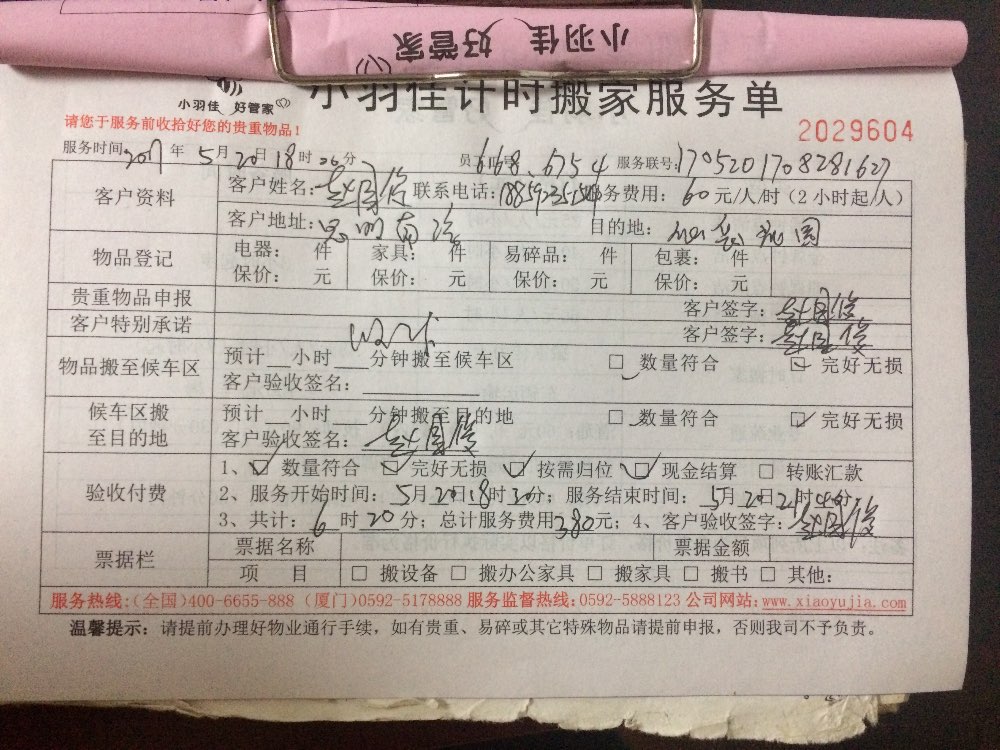 小羽佳 好管家
小羽佳 好管家
小羽佳计时搬家服务单
请您于服务前收拾好您的贵重物品！
2029604
服务时间: 2017 年 5 月 20 日 18 时 分 员工工号: 668、6754 服务联号: 1705201708281627
客户资料
客户姓名: 联系电话: 服务费用: 60 元/人/时（2 小时起/人）
客户地址: 思明南路 目的地:
物品登记
电器: 件 家具: 件 易碎品: 件 包裹: 件
保价: 元 保价: 元 保价: 元 保价: 元
贵重物品申报 客户签字:
客户特别承诺 客户签字:
物品搬至候车区
预计 小时 分钟搬至候车区 □ 数量符合 ☑ 完好无损
客户验收签名:
候车区搬至目的地
预计 小时 分钟搬至目的地 □ 数量符合 ☑ 完好无损
客户验收签名:
验收付费
1、☑ 数量符合 ☑ 完好无损 ☑ 按需归位 ☑ 现金结算 □ 转账汇款
2、服务开始时间: 5月20日18时30分; 服务结束时间: 5月20日21时40分
3、共计: 6 时 20 分; 总计服务费用 380 元; 4、客户验收签字:
票据栏
票据名称 票据金额
项 目 □ 搬设备 □ 搬办公家具 □ 搬家具 □ 搬书 □ 其他:
服务热线:(全国)400-6655-888 (厦门)0592-5178888 服务监督热线:0592-5888123 公司网站:www.xiaoyujia.com
温馨提示: 请提前办理好物业通行手续，如有贵重、易碎或其它特殊物品请提前申报，否则我司不予负责。